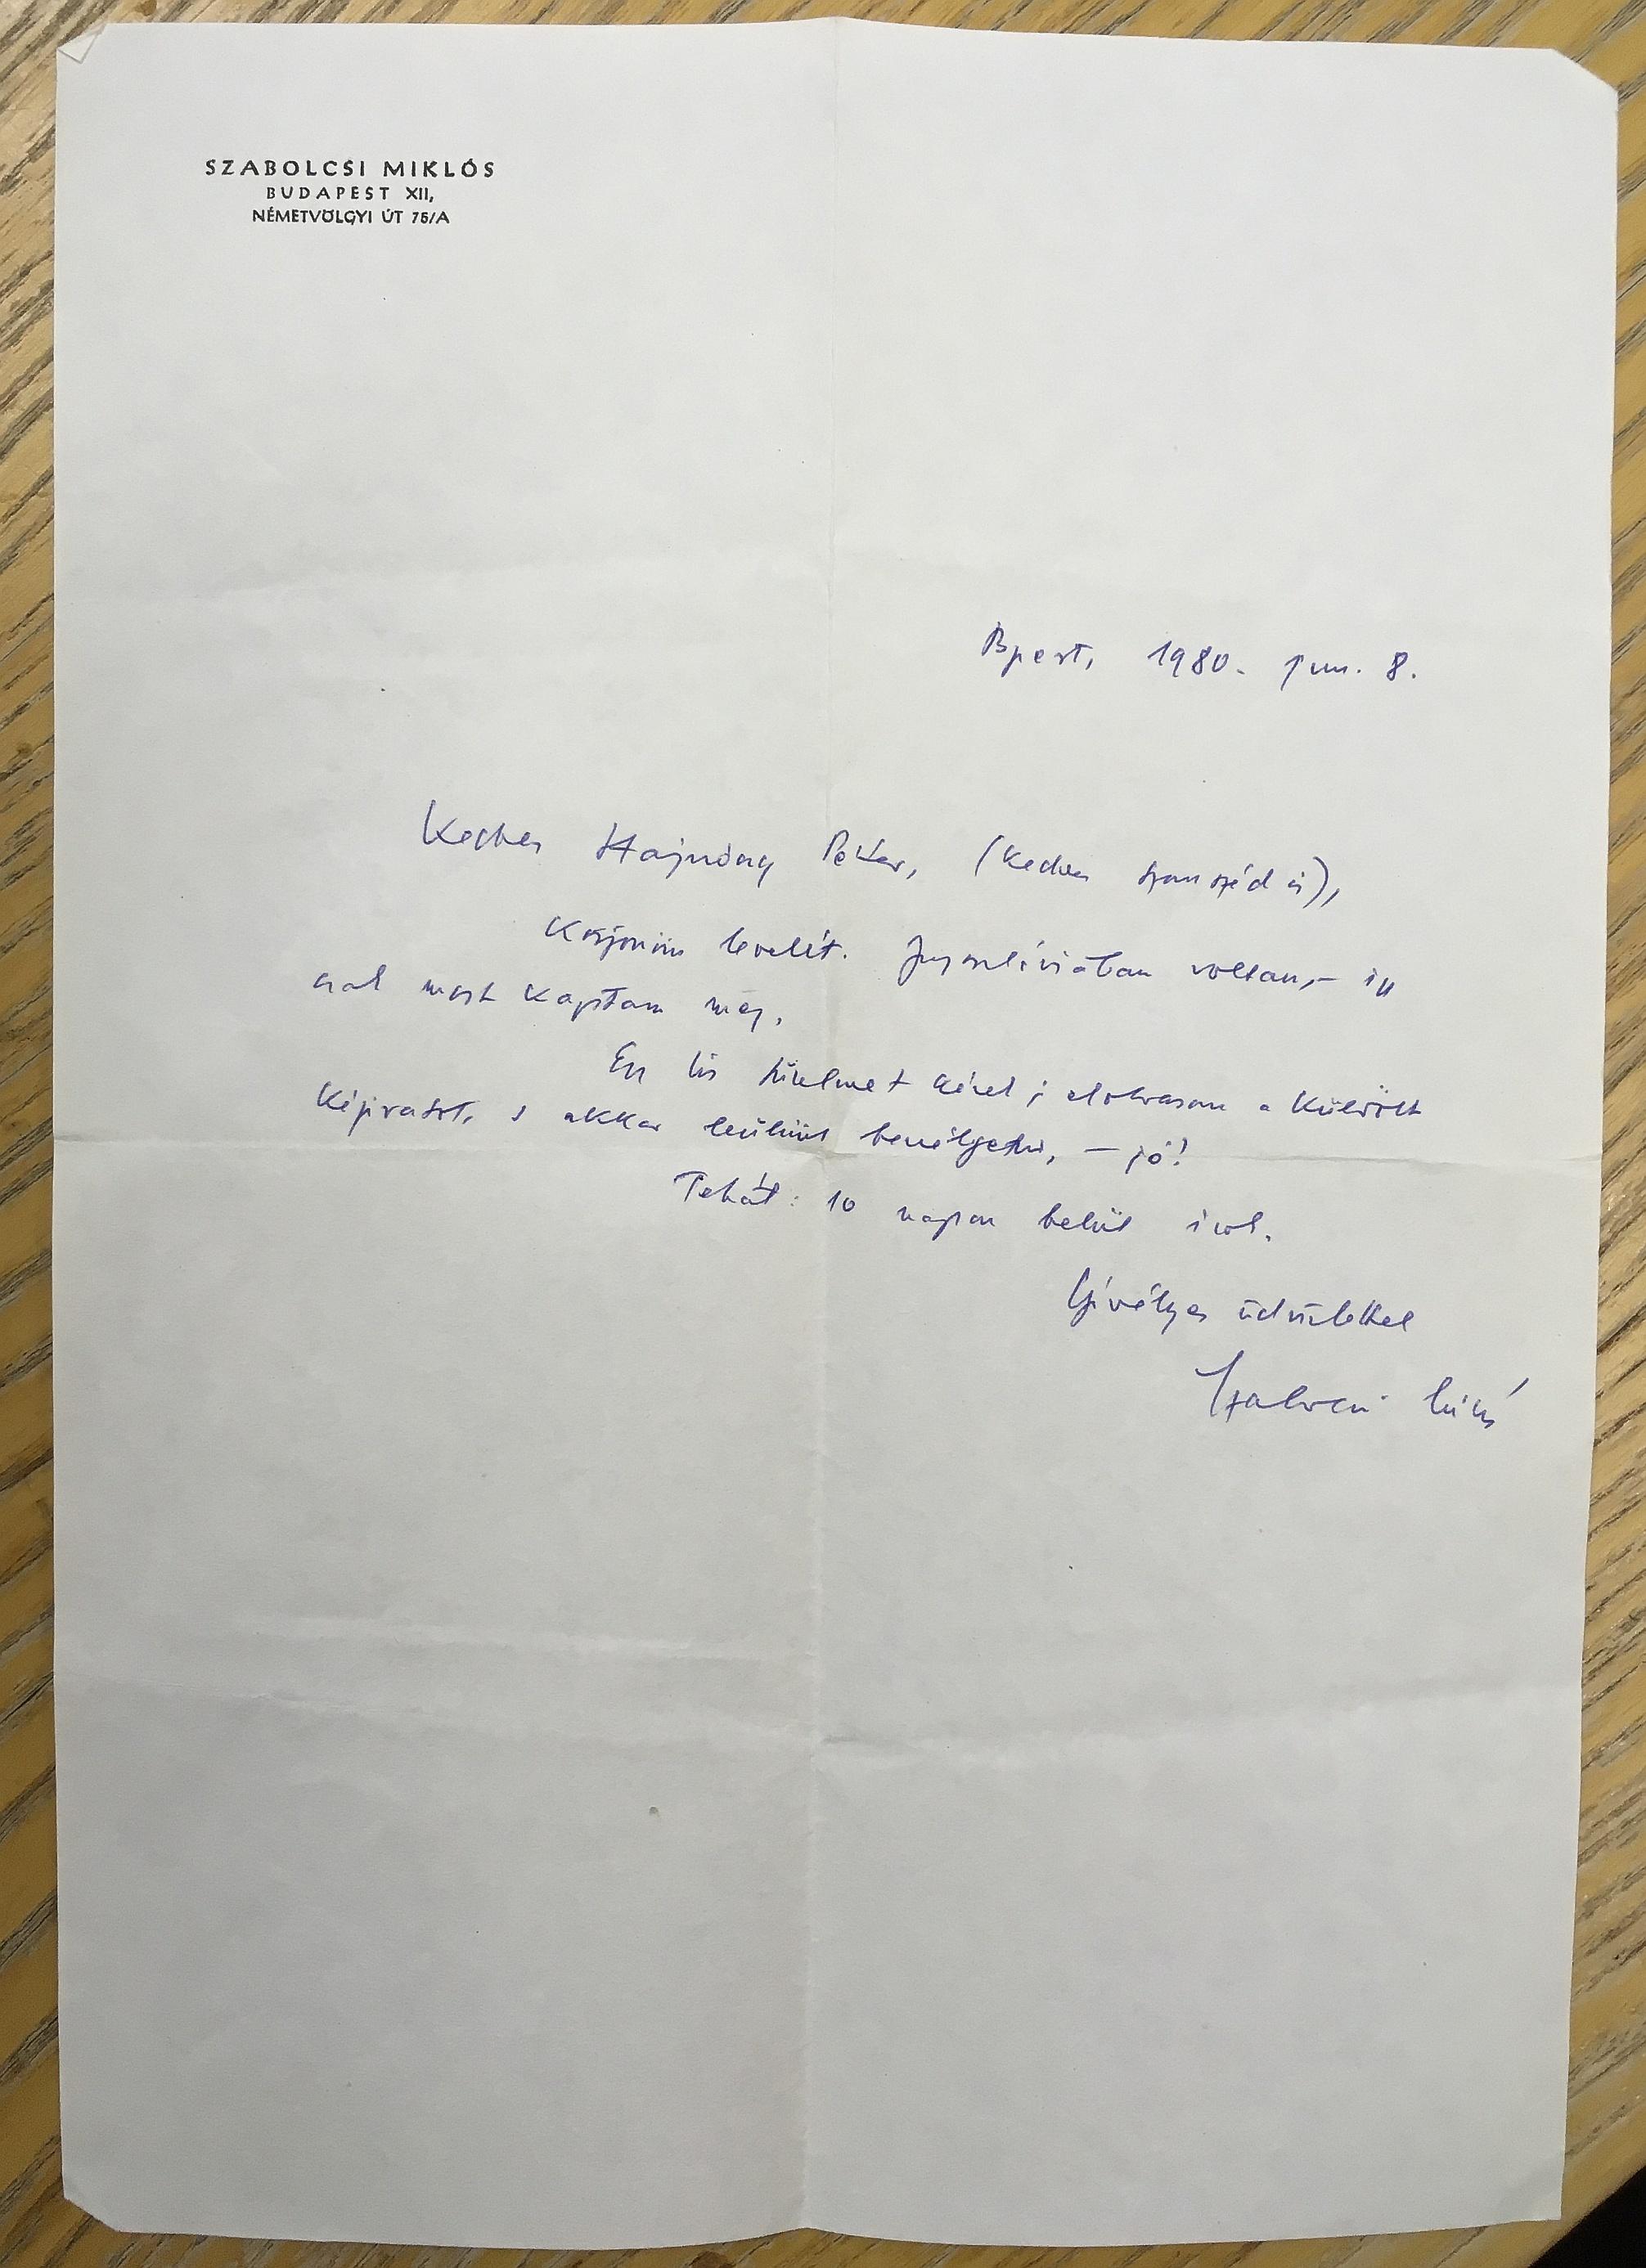 SZABOLCSI MIKLÓS
BUDAPEST XII,
NÉMETVÖLGYI ÚT 75/A
Bpest, 1980. jun. 8.
Kedves Hajnóczy Péter, (kedves szomszéd is),
Köszönöm levelét. Jugoszláviában voltam, – így
csak most kaptam meg.
Egy kis türelmet kérek; elolvasom a küldött
kéziratot, s akkor leülünk beszélgetni, – jó?
Tehát: 10 napon belül írok.
Szívélyes üdvözlettel
Szabolcsi Miklós